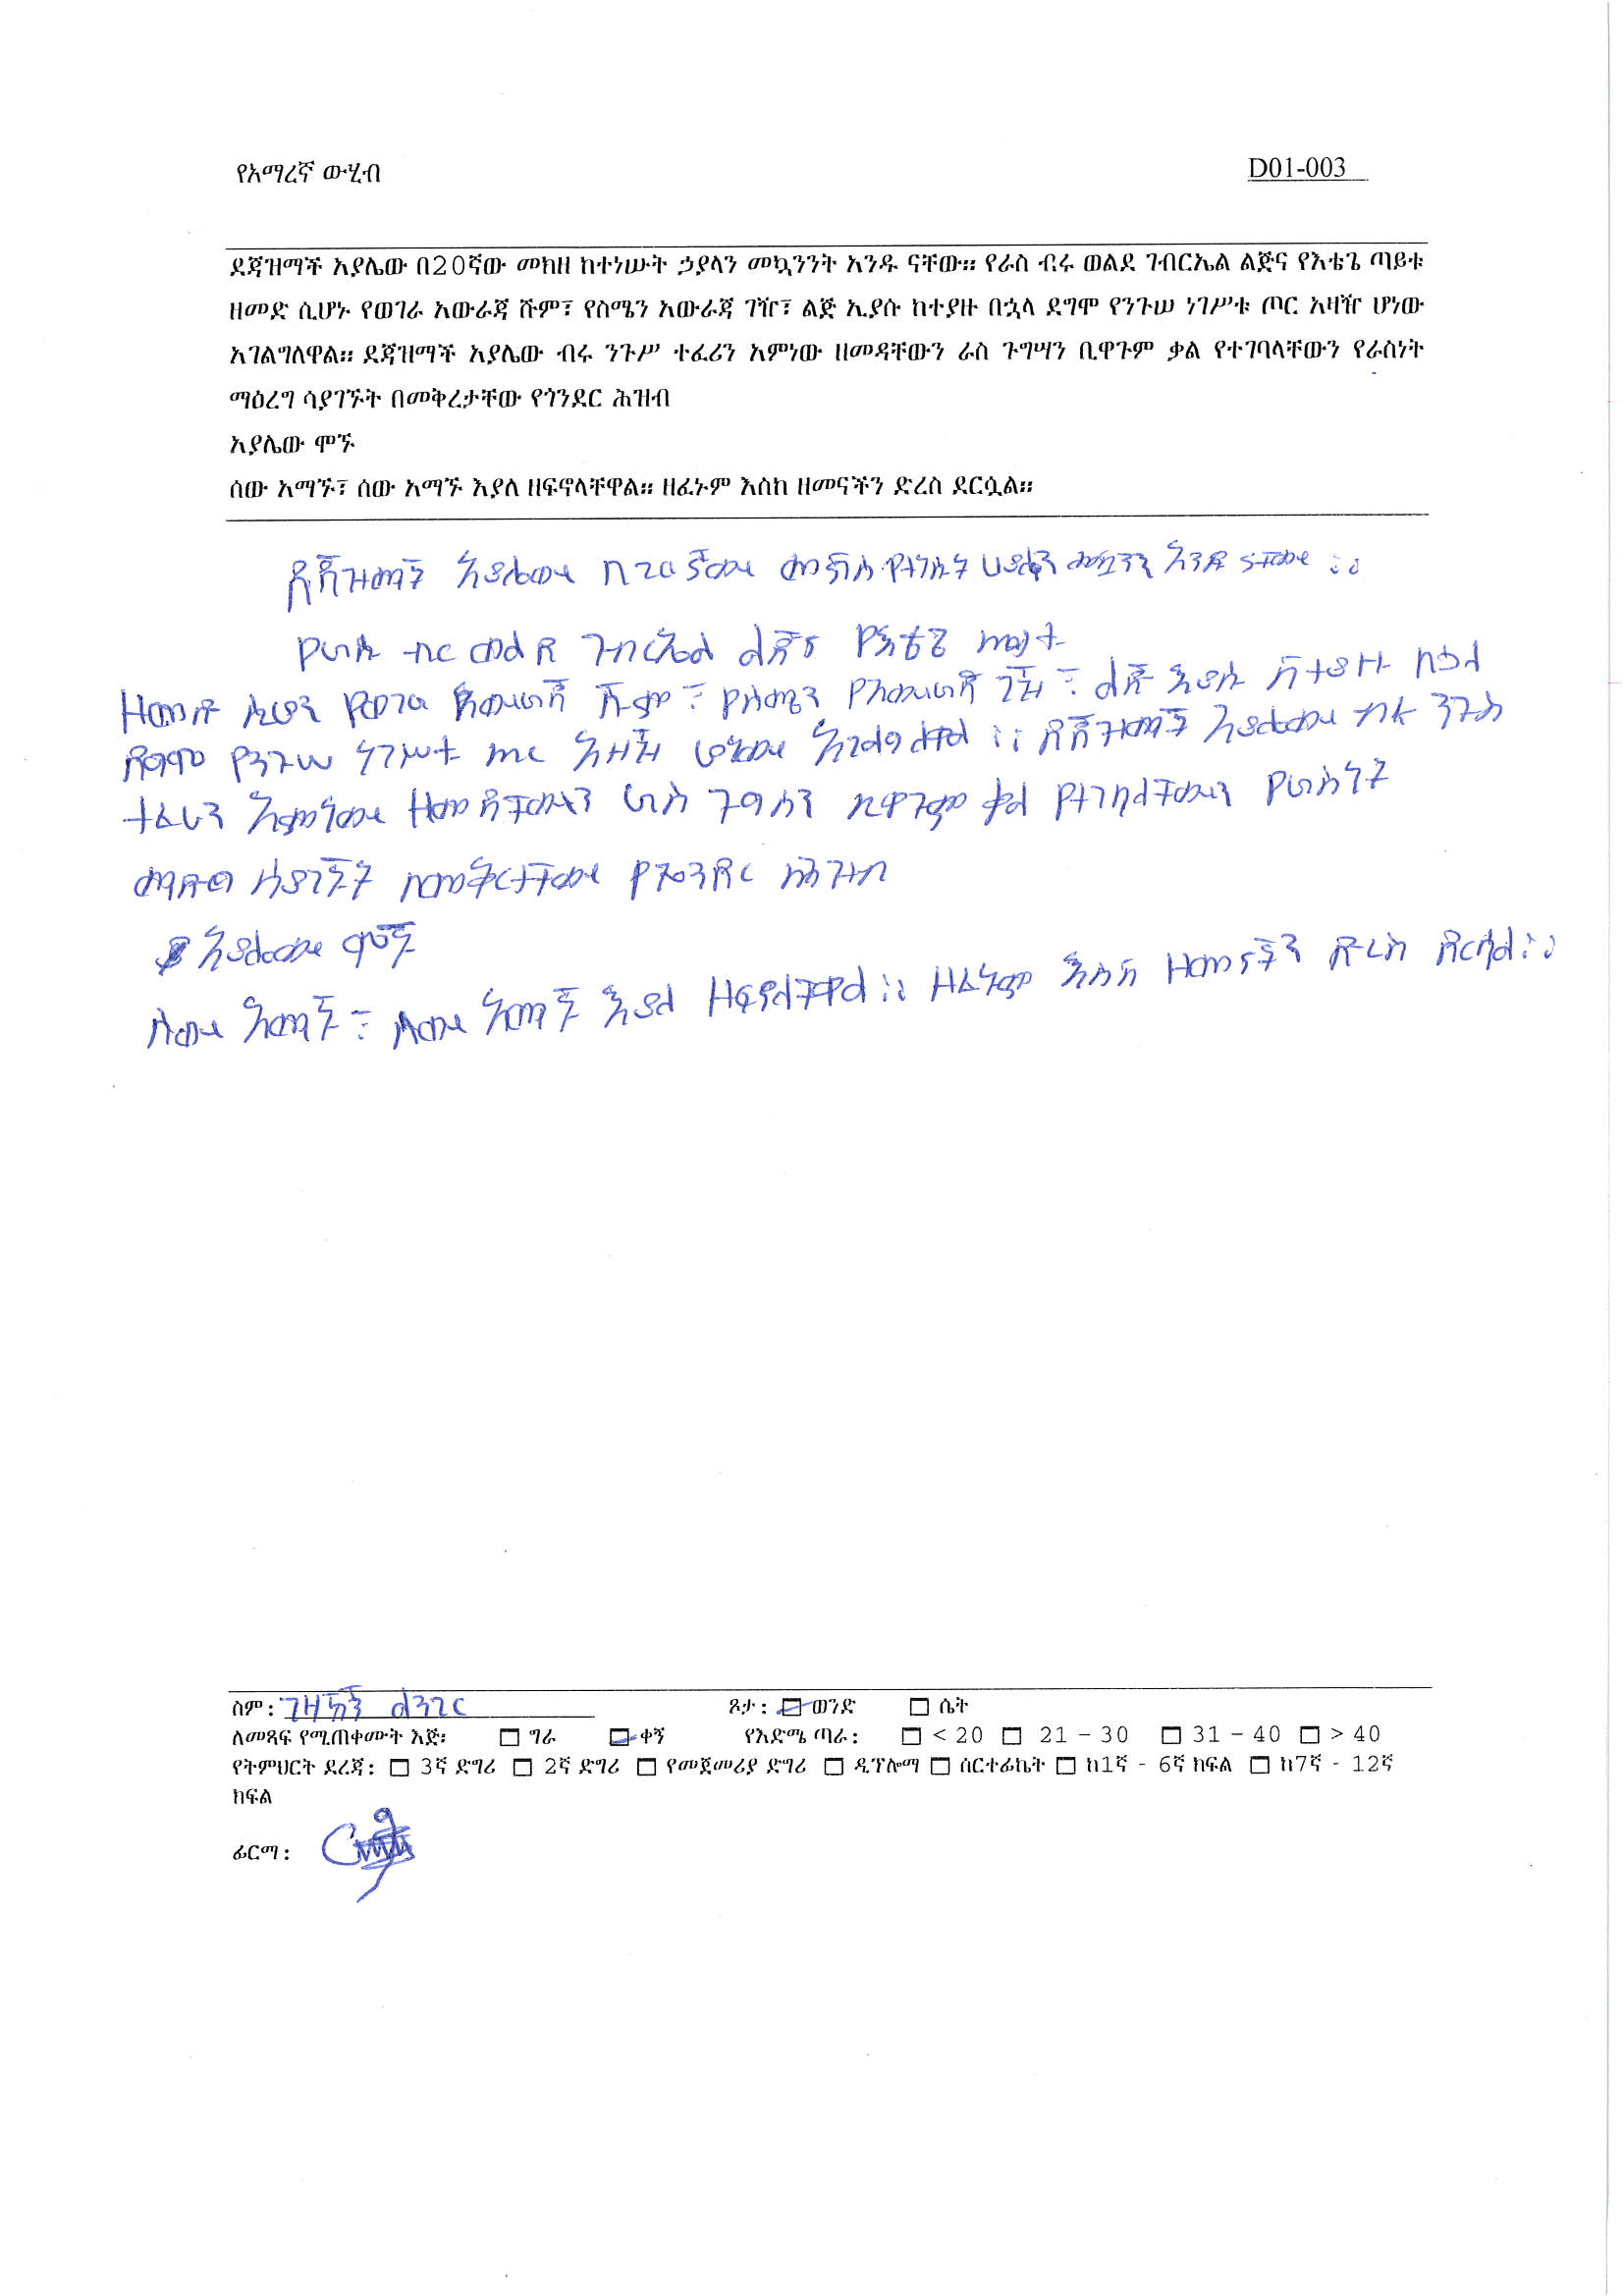 የአማረኛ ውሂብ
D01-003
ደጃዝማች አያሌው በ20ኛው መክዘ ከተነሡት ኃያላን መኳንንት አንዱ ናቸው። የራስ ብሩ ወልደ ገብርኤል ልጅና የእቴጌ ጣይቱ
ዘመድ ሲሆኑ የወገራ አውራጃ ሹም፣ የስሜን አውራጃ ገዥ፣ ልጅ ኢያሱ ከተያዙ በኋላ ደግሞ የንጉሠ ነገሥቱ ጦር አዛዥ ሆነው
አገልግለዋል። ደጃዝማች አያሌው ብሩ ንጉሥ ተፈሪን አምነው ዘመዳቸውን ራስ ጉግሣን ቢዋጉም ቃል የተገባላቸውን የራስነት
ማዕረግ ሳያገኙት በመቅረታቸው የጎንደር ሕዝብ
አያሌው ሞኙ
ሰው አማኙ፣ ሰው አማኙ እያለ ዘፍኖላቸዋል። ዘፈኑም እስከ ዘመናችን ድረስ ደርሷል።
ደጃዝማች አያሌው በ20ኛው አንዱ ናቸው ።
የራስ ብር ወልደ ገብርኤል ልጅና የእቴጌ
ዘመዱ ሲሆን የወገራ አውራጃ ሹም ፣ የስሜን የአውራጃ ገዥ ፣ ልጅ እያሱ ከተያዙ በኃላ
ደግሞ የንጉሠ ነገሥቱ ጦር አዛዥ ሆነው አገልግለዋል ። ደጃዝማች አያሌው ብሩ ንጉስ
ተፈሪን አምነው ዘመዳቸውን ራስ ጉግሳን ቢዋጉም ቃል የተገባላቸውን የራስነት
ማዕረግ ሳያገኙት በመቅረታቸው የጐንደር ህዝብ
አያሌው ሞኙ
ሰው አማኙ ፣ ሰው አማኙ እያለ ዘፍኖላቸዋል ። ዘፈኑም እስከ ዘመናችን ድረስ ደርሷል ።
ስም: ጾታ: ወንድ ሴት
ለመጻፍ የሚጠቀሙት እጅ: ግራ ቀኝ የእድሜ ጣራ: < 20 21 – 30 31 – 40 > 40
የትምህርት ደረጃ: 3ኛ ድግሪ 2ኛ ድግሪ የመጀመሪያ ድግሪ ዲፕሎማ ሰርተፊኬት ከ1ኛ - 6ኛ ክፍል ከ7ኛ - 12ኛ
ክፍል
ፊርማ: